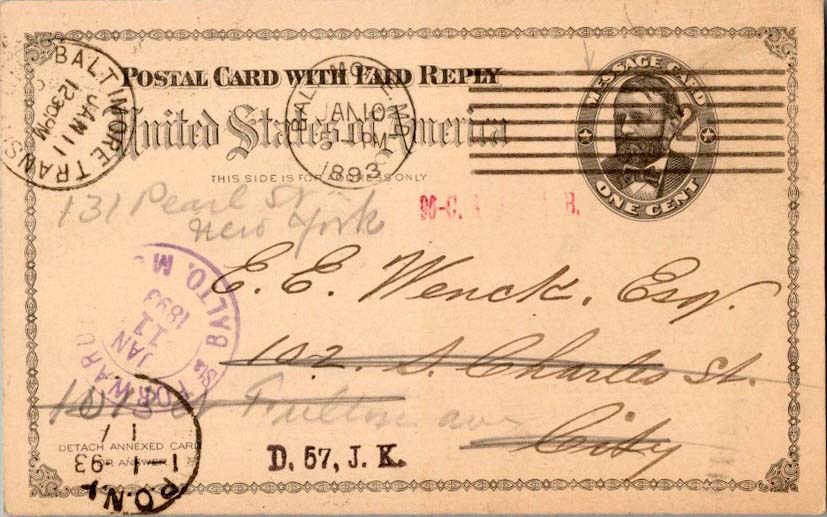 POSTAL CARD WITH PAID REPLY
United States of America
THIS SIDE IS FOR ADDRESS ONLY
MESSAGE CARD
ONE CENT
BALTIMORE TRANSIT
JAN 11
1230PM
BALTIMORE, MD
JAN 10
PM
1893
2
131 Pearl St
New York
90-C. B.
E. E. Wenck, Esq.
102. S. Charles St.
City
Fulton ave
FORWARD
Sta BALTO. MD
JAN
11
1893
DETACH ANNEXED CARD
FOR ANSWER
D. 57, J. K.
P.O. N.Y.
1
93